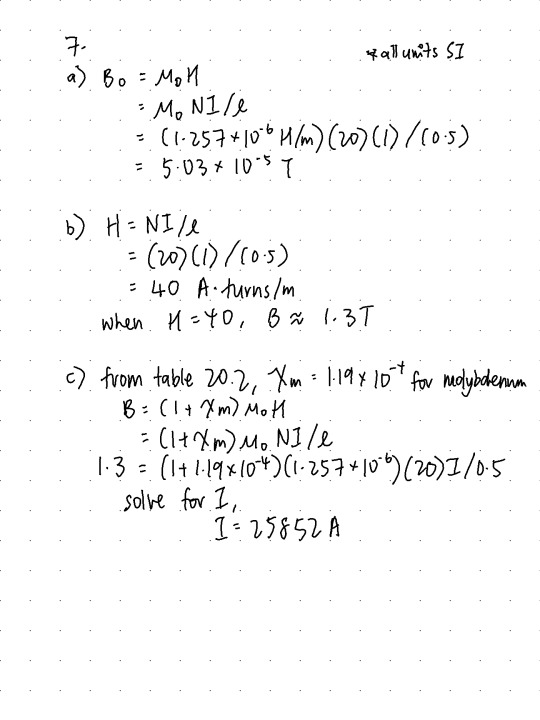 7.
* all units SI
a) B₀ = μ₀H
= μ₀ NI/ℓ
= (1.257 × 10⁻⁶ H/m)(20)(1)/(0.5)
= 5.03 × 10⁻⁵ T
b) H = NI/ℓ
= (20)(1)/(0.5)
= 40 A·turns/m
when H = 40, B ≈ 1.3T
c) from table 20.2, χm = 1.19 × 10⁻⁴ for molybdenum
B = (1 + χm) μ₀H
= (1 + χm) μ₀ NI/ℓ
1.3 = (1 + 1.19 × 10⁻⁴)(1.257 × 10⁻⁶)(20)I/0.5
solve for I,
I = 25852 A